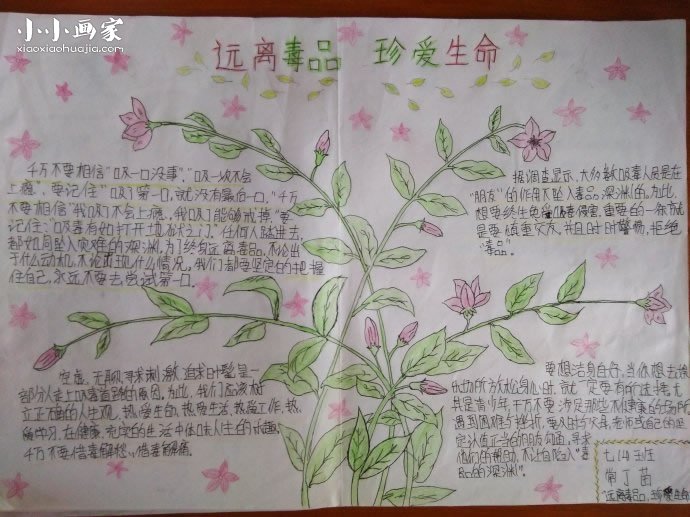 小小画家
xiaoxiaohuajia.com
远离毒品 珍爱生命
千万不要相信"吸一口没事","吸一次不会
上瘾,要记住"吸了第一口,就没有最后一口。"千万
不要相信"我吸了不会上瘾,我吸了能够戒掉"要
记住:"吸毒有如打开地狱之门。"任何人踏进去,
都如同坠入灾难的深渊,为了终身远离毒品,不论出
于什么动机,不论出现什么情况,我们都要坚定的把握
住自己,永远不要去尝试第一口。
据调查显示,大多数吸毒人员是在
"朋友"的作用下坠入毒品深渊的,为此,
想要终生免遭毒害,重要的一条就
是要慎重交友,并且时时警惕,拒绝
"毒品"。
空虚、无聊寻求刺激 追求时髦是一
部分人走上吸毒道路的原因,为此,我们应该树
立正确的人生观,热爱生命,热爱生活,热爱工作,热
爱学习,在健康、充实的生活中体味人生的乐趣,
千万不要借毒解愁、借毒解痛。
要想洁身自好,当你想去
场所放松身心时,就一定要有所选择,尤
其是青少年,千万不要涉足那些不健康的场所
遇到困难与挫折,要及时与父母、老师或自己的坚
定认真正当的朋友沟通,寻求
他们的帮助,不让自己陷入"毒
品的深渊"。
七(4)班
常丁苗
远离毒品,珍爱生命